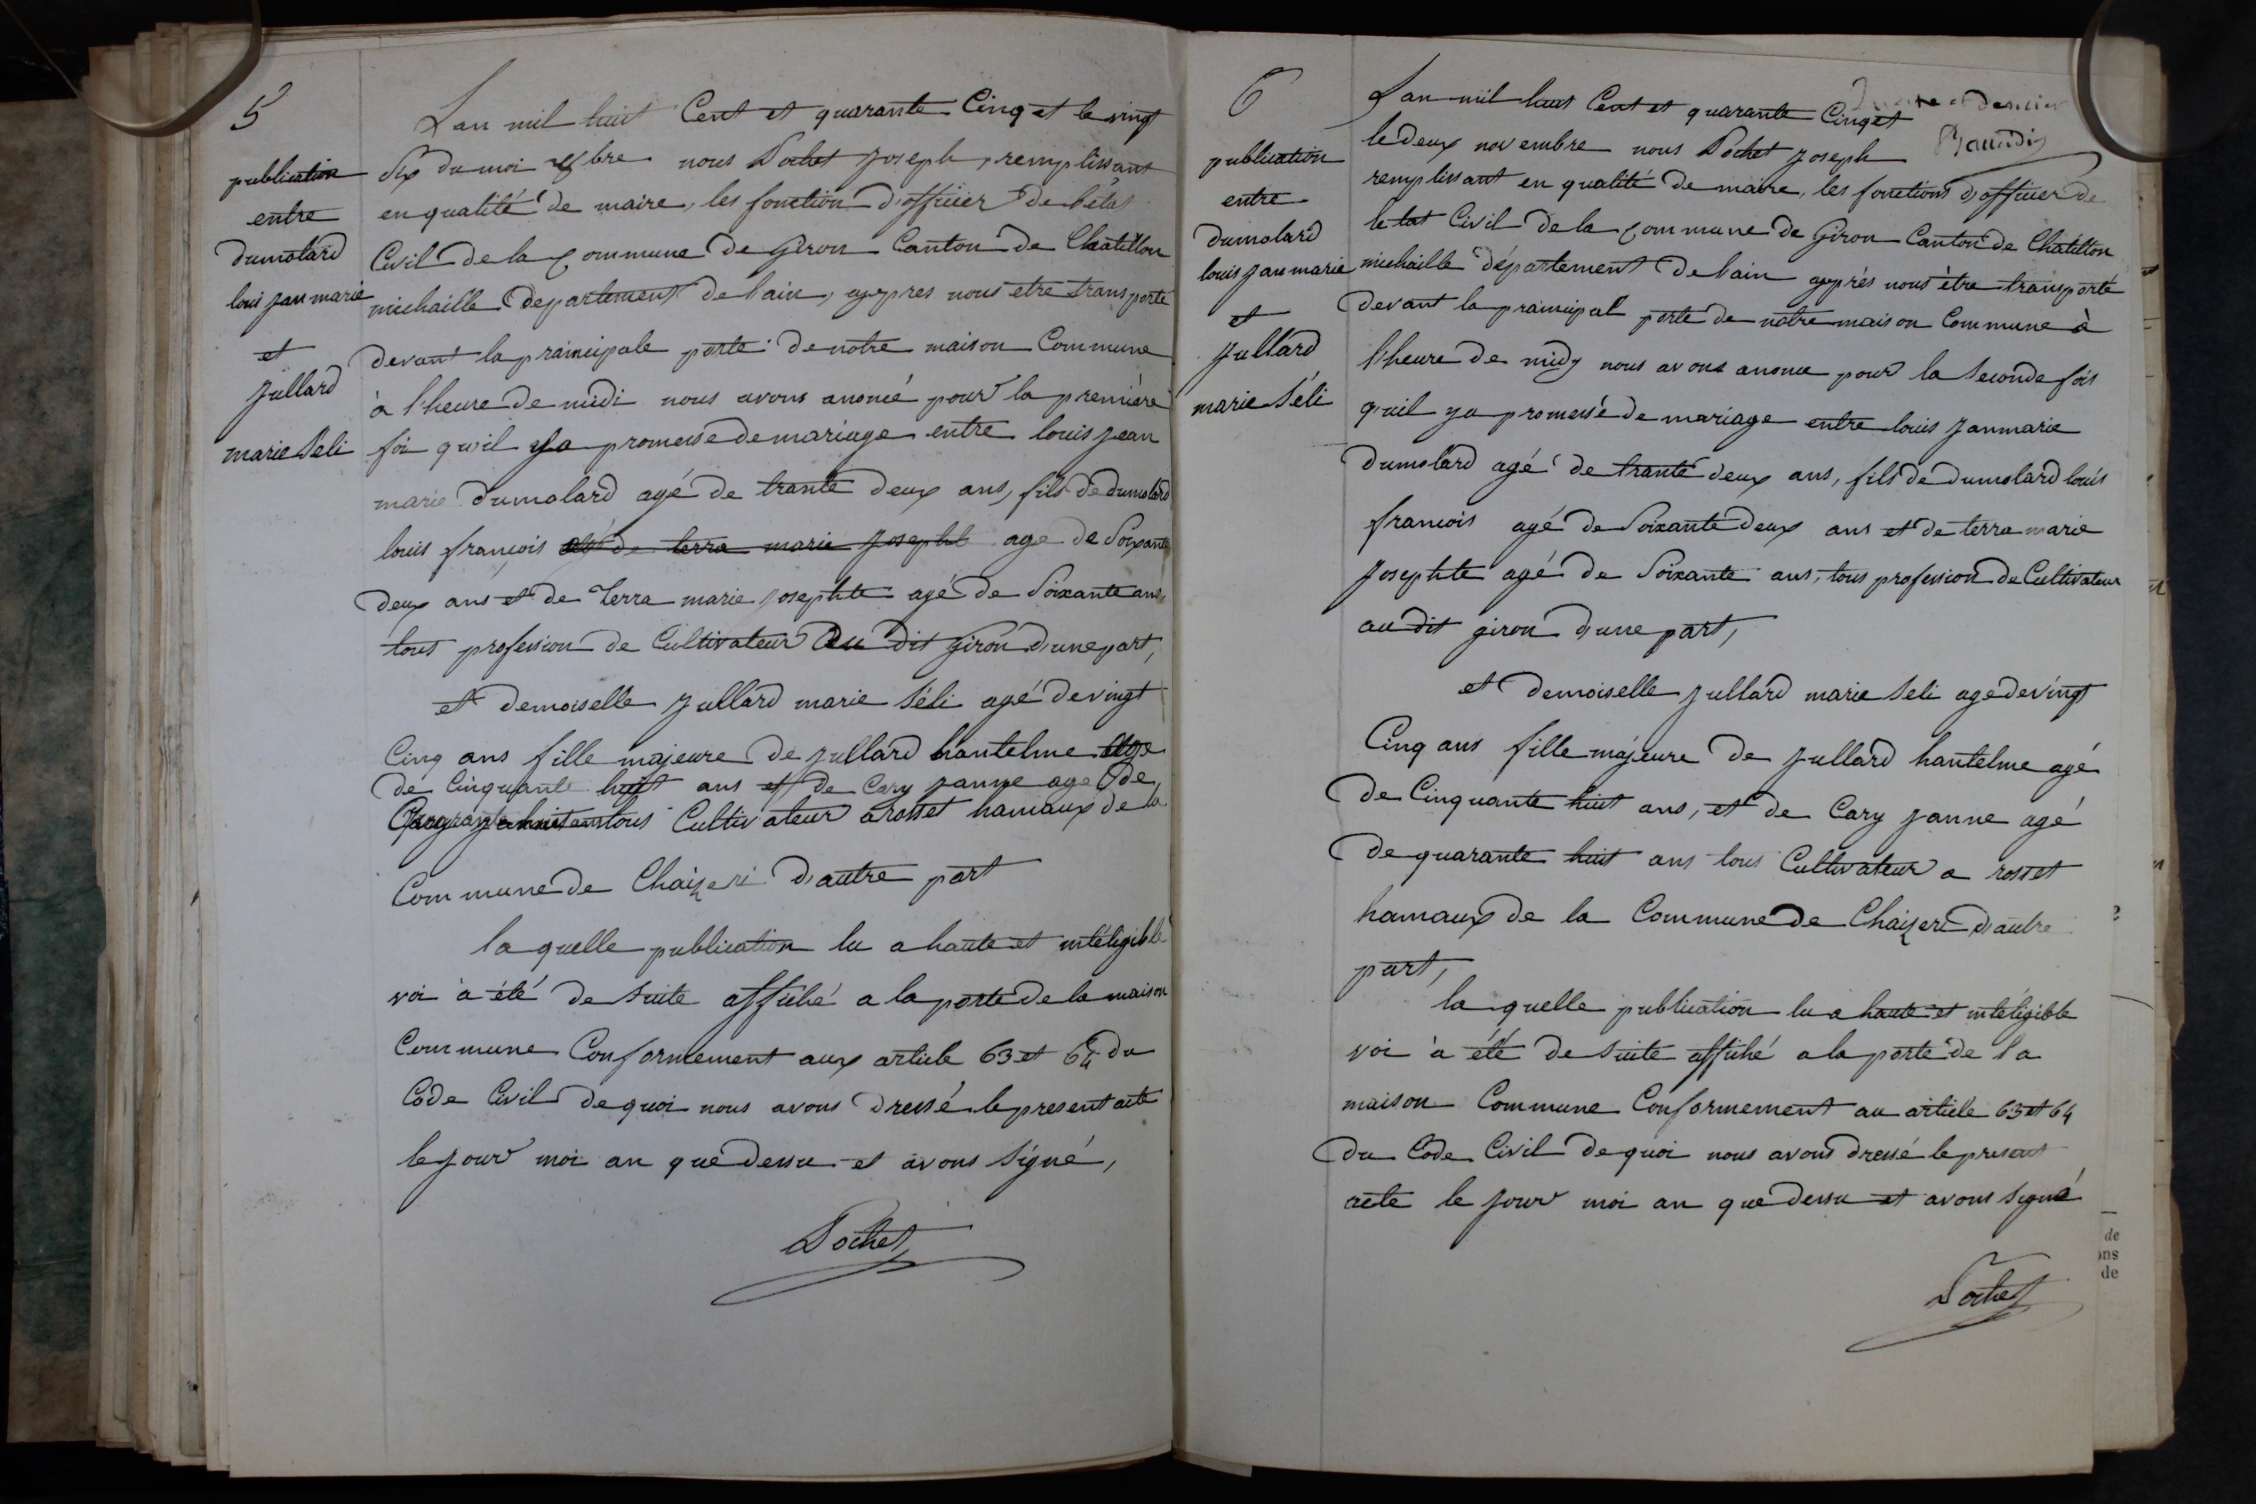 5
publication
entre
dumolard
loui jan marie
et
jullard
marie Séli
Lan mil huit Cent et quarante Cinq et le vingt
Six du moi 8bre nous Pochet joseph, remplissant
en qualité de maire, les fonction d'officier de l'état
Civil de la Commune de Giron Canton de Chatillon
michaille departement de l'ain, appres nous etre transporté
devant la praincipale porte de notre maison Commune
à l'heure de midi nous avons anoncé pour la première
foi qu'il ya promesse de mariage entre louis jean
marie dumolard agé de trante deux ans, fils de dumolard
louis françois et de terra marie josepht age de Soixante
deux ans et de Terra marie josephte agé de Soixante ans,
tous profession de Cultivateur au dit giron d'une part,
et demoiselle jullard marie Séli agé de vingt
Cinq ans fille majeure de jullard hantelme age
de Cinquante huit ans et de Cary janne age de
quarante huit ans tous Cultivateur a rosset hamaux de la
Commune de Chaizeri d'autre part
la quelle publication lu a haute et intéligible
voi à été de suite affiché a la porte de la maison
Commune Conformement aux article 63 et 64 du
Code Civil de quoi nous avons dressé le present acte
le jour moi an que dessu et avons signé,
Pochet
6
publication
entre
dumolard
louis jan marie
et
jullard
marie Séli
Lan mil huit Cent et quarante Cinq et
le deux novembre nous Pochet joseph
remplissant en qualité de maire, les fonctions d'officier de
letat Civil de la Commune de Giron Canton de Chatillon
michaille département de l'ain apprés nous être transporté
devant la praincipal porte de notre maison Commune à
l'heure de midy nous avons anonce pour la seconde fois
quil ya promessé de mariage entre louis janmarie
dumolard agé de trante deux ans, fils de dumolard louis
francois agé de Soixante deux ans et de terra marie
josephte agé de Soixante ans, tous profession de Cultivateur
au dit giron d'une part,
et demoiselle jullard marie Seli age de vingt
Cinq ans fille majeure de jullard hantelme agé
de Cinquante huit ans, et de Cary janne agé
de quarante huit ans tous Cultivateur a rosset
hamaux de la Commune de Chaizeri d'autre
part,
la quelle publication lu a haute et intéligible
voi à été de suite affiché a la porte de la
maison Commune Conformement au article 63 et 64
du Code Civil de quoi nous avons dressé le present
acte le jour moi an que dessu et avons signé
Pochet
de
ons
de